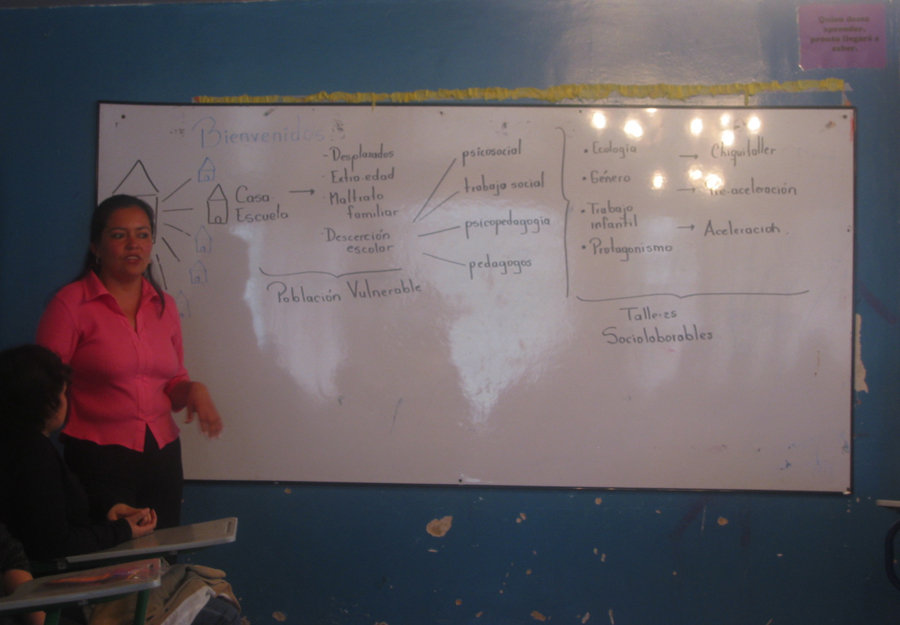 Quien desea
aprender,
pronto llegará a
saber.
Bienvenidos
Casa
Escuela
- Desplazados
- Extra edad
- Maltrato
familiar
- Descerción
escolar
Población Vulnerable
psicosocial
trabajo social
psicopedagogia
pedagogos
• Ecologia
• Género
• Trabajo
infantil
• Protagonismo
→ Chiquitaller
→ Pre-aceleración
→ Aceleracion.
Talleres
Sociolaborables